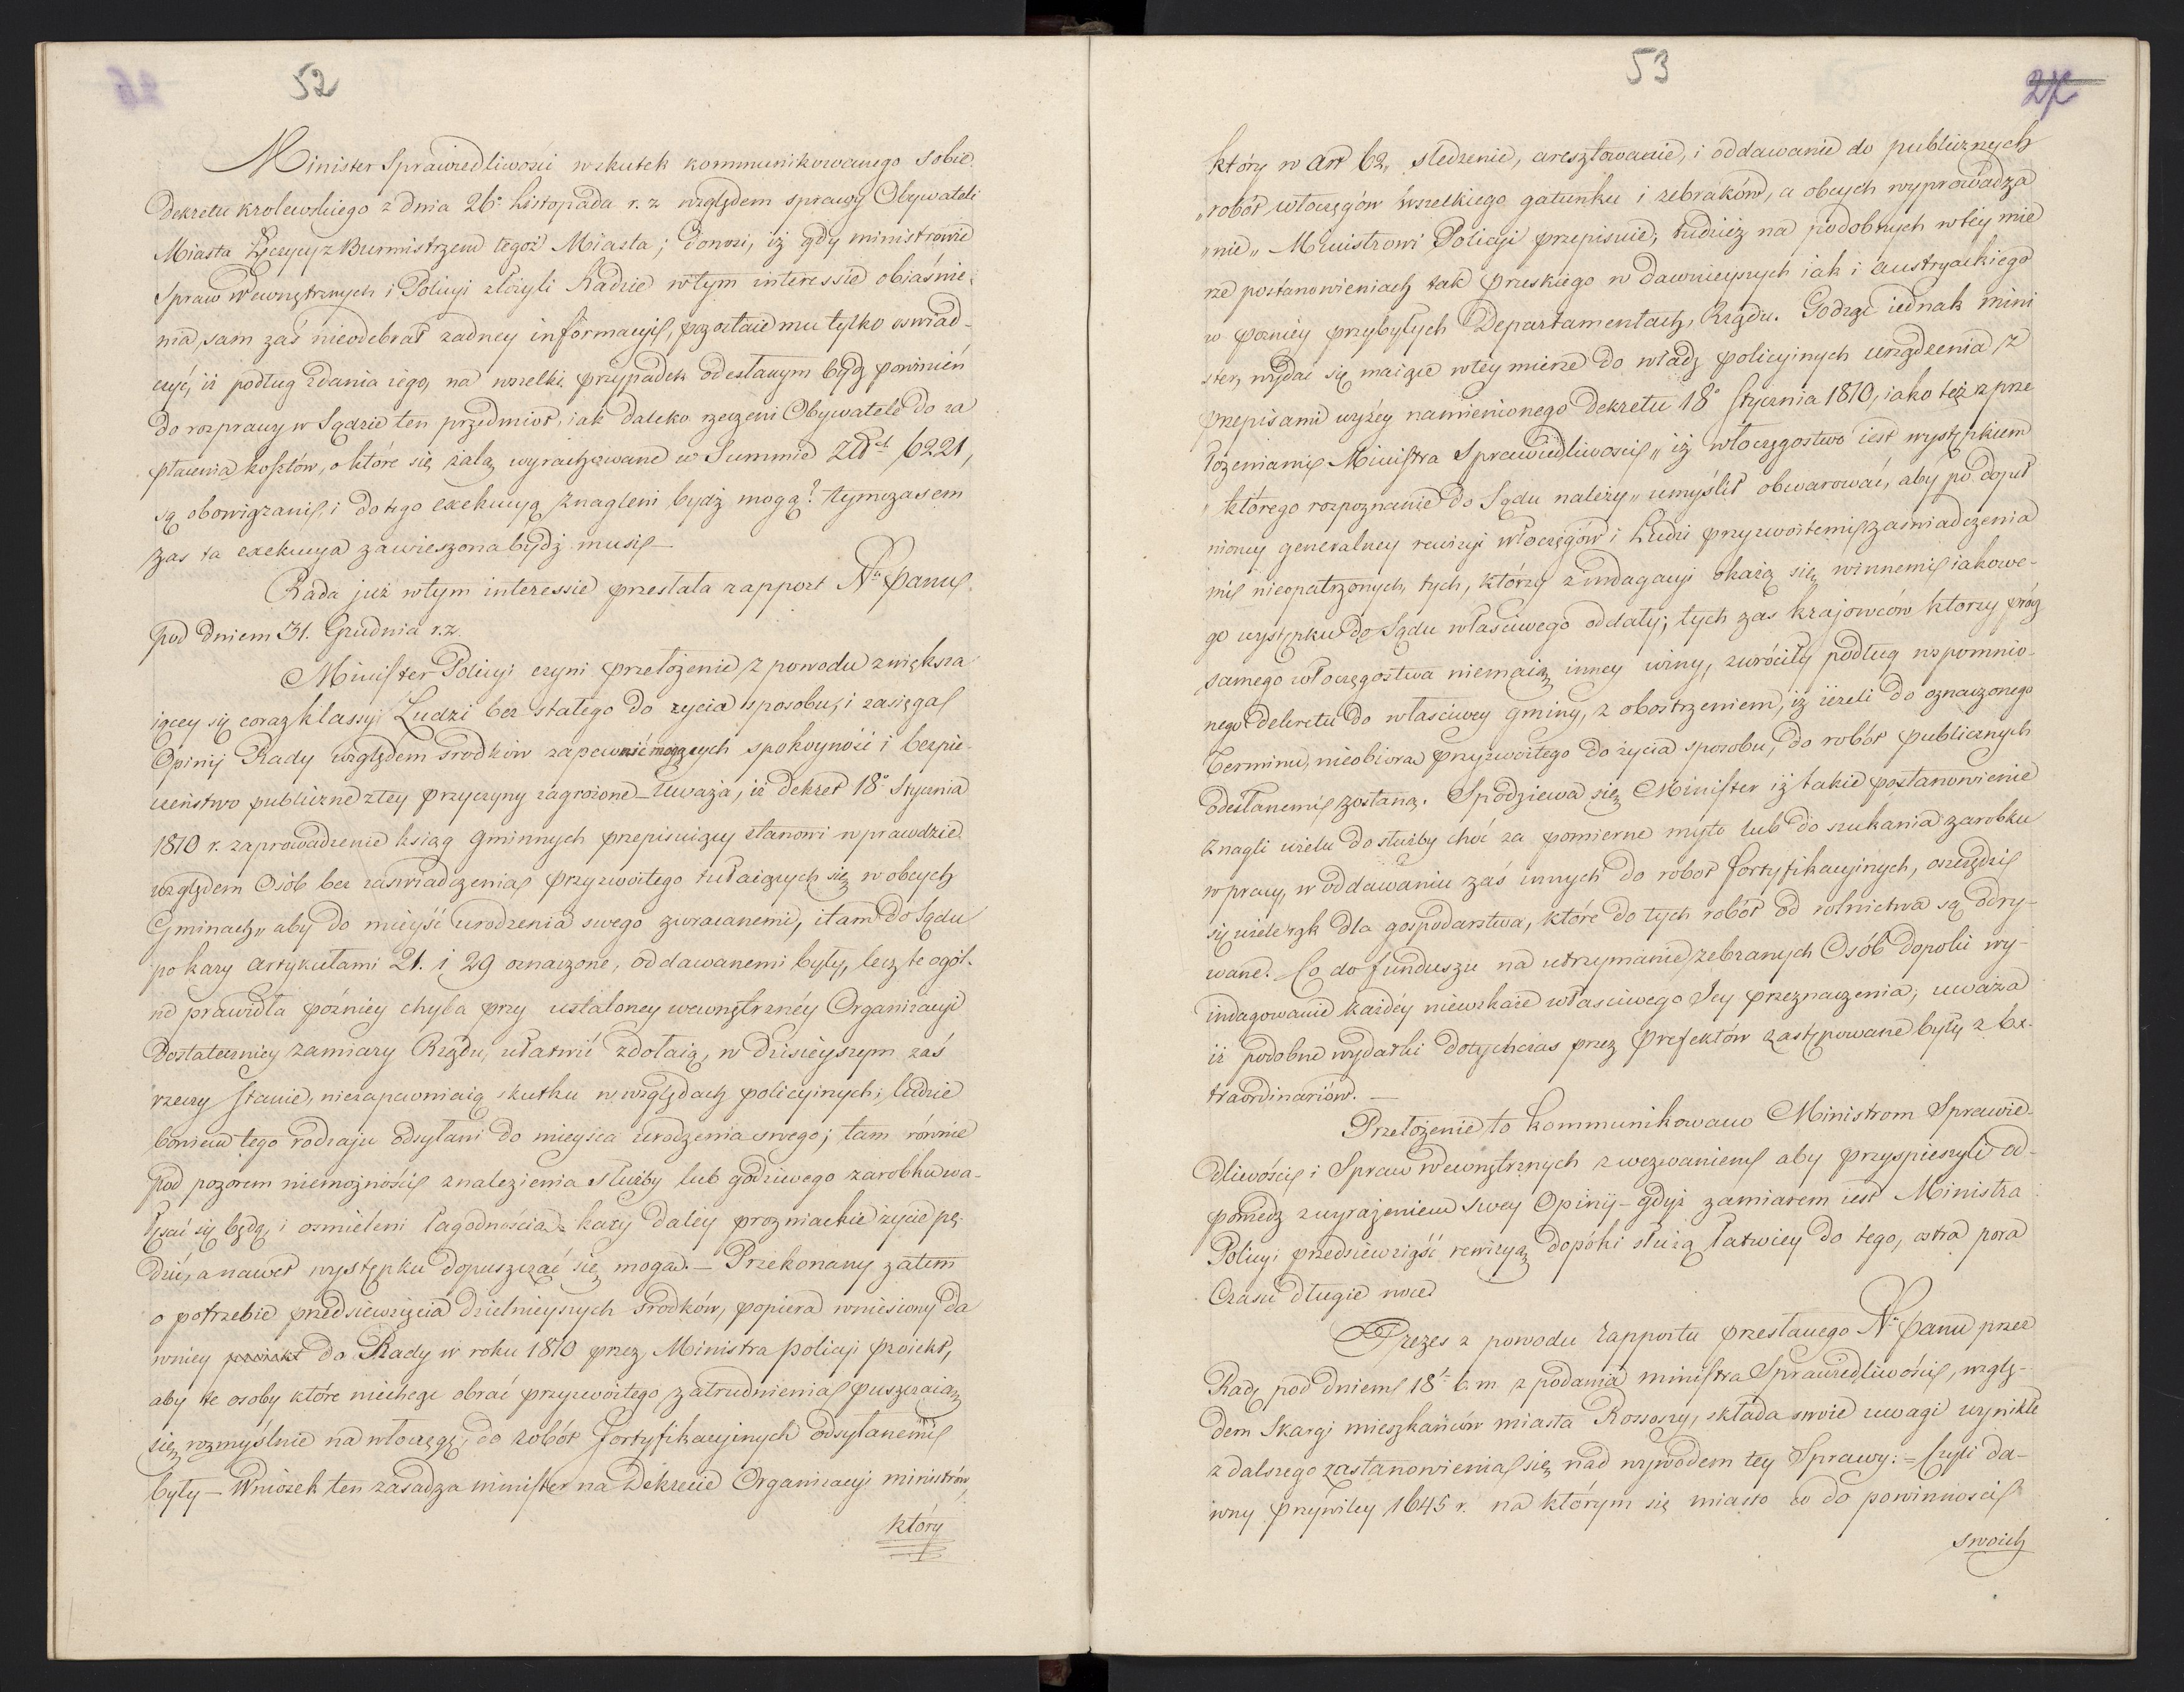 52
Minister Sprawiedliwości wskutek kommunikowanego sobie
Dekretu krolewskiego z dnia 26º Listopada r. z względem sprawy Obywateli
Miasta Łęczycy z Burmistrzem tegoż Miasta; donosi, iż gdy ministrowie
Spraw Wewnętrznych i Policyi złożyli Radzie wtym interessie obiaśnie-
nia, sam zaś nieodebrał żadney informacyi, pozostaie mu tylko oswiad-
czyć, iż podług zdania iego, na wszelki przypadek odesłanym bydź powinien
do rozprawy w Sądzie ten przedmiot, iak daleko rzeczeni Obywatele do za
płacenia kosztów, o które się żalą wyrachowane w Summie Złł 6221,
są obowiązani, i do tego exekucyą znagleni bydź mogą? tymczasem
zas ta exekucya zawieszona bydź musi —
Rada już wtym interessie przesłała rapport N. Panu
pod dniem 31. Grudnia r. z.
Minister Policyi czyni przełożenie z powodu zwiększa
iącey się coraz klassyi Ludzi bez stałego do życia sposobu, i zasięga
Opinij Rady względem srodków zapewnić mogących spokoyność i bezpie-
czeństwo publiczne z tey przyczyny zagrożone — Uważa, iż dekret 18º Stycznia
1810 r. zaprowadzenie ksiąg gminnych przepisuiący stanowi wprawdzie
względem Osób bez zaswiadczenia przyzwoitego tułaiących się w obcych
Gminach „ aby do mieyść urodzenia swego zwracanemi, i tam do Sądu
po kary artykułami 21. i 29 oznaczone, oddawanemi były, lecz te ogól-
ne prawidła pózniey chyba przy ustaloney wewnętrznéy Organizacyi
dostateczniey zamiary Rządu, ułatwić zdołaią, w dzisieyszym zaś
rzeczy stanie, niezapewniaią skutku w względach policyinych; ludzie
bowiem tego rodzaju odsyłani do mieysca urodzenia swego; tam równie
pod pozorem niemożności znalezienia służby lub godziwego zarobku wa-
łęsać się będą, i osmieleni łagodnością kary daley prozniackie życie pę-
dzić, a nawet występku dopuszczać się mogą. — Przekonany zatem
o potrzebie przedsiewzięcia dzielnieyszych srodków, popiera wniesiony da
wniey proiekt do Rady w roku 1810 przez Ministra policyi proiekt,
aby te osoby które niechcąc obrać przyzwoitego zatrudnienia puszczaią
się rozmyślnie na włoczęgę, do robót fortyfikacyinych odsyłanemi
były — Wniosek ten zasadza minister na Dekrecie Organizacyi ministrów,
który
53
27
który w art 62, sledzenie, aresztowanie, i oddawanie do publicznych
„ robót włoczęgów wszelkiego gatunku i zebraków, a obcych wyprowadza
„ nie „ Ministrowi Policyi przepisuie; tudzież na podobnych wtey mie
rze postanowieniach tak Pruskiego w dawnieyszych iak i austryackiego
w pozniey przybyłych Departamentach, Rządu. Godząc iednak mini
ster, wydać się maiące wtey mierze do władz policyinych urządzenia z
przepisami wyżey namienionego Dekretu 18º Stycznia 1810, iako też z prze
łożeniami Ministra Sprawiedliwości „ iż włoczęgostwo iest występkiem
„ którego rozpoznanie do Sądu należy „ umyślił obwarować, aby po dopeł
nioney generalney rewizyi włoczęgów i Ludzi przyzwoitemi zaswiadczenia
mi nieopatrzonych, tych, którzy z indagacyi okażą się winnemi iakowe-
go występku do Sądu właściwego oddały; tych zas krajowców ktorzy próz
samego włoczęgostwa niemaią inney winy, zwróciły podług wspomnio-
nego dekretu do właściwey gminy, z obostrzeniem, iż ieżeli do oznaczonego
terminu, nieobiorą przyzwoitego do życia sposobu, do robót publicznych
odesłanemi zostaną. Spodziewa się Minister iż takie postanowienie
znagli wielu do służby choć za pomierne myto lub do szukania zarobku
w pracy, w oddawaniu zaś innych do robot fortyfikacyinych, oszczędzi
się wiele rąk dla gospodarstwa, które do tych robót od rolnictwa są odry-
wane. Co do funduszu na utrzymanie zebranych Osób dopoki wy-
indagowanie każdéy niewskaże właściwego Jey przeznaczenia; uważa
iż podobne wydatki dotychczas przez Prefektów zastępowane były z Ex-
traordinariów. —
Przełożenie to kommunikowano Ministrom Sprawie-
dliwości i Spraw Wewnętrznych z wezwaniem aby przyspieszyli od-
powiedź z wyrażeniem swey Opinij — gdyż zamiarem iest Ministra
Policyi przedsiewziąść rewizyą dopóki służą łatwiey do tego, ostra pora
czasu długie noce
Prezes z powodu rapportu przesłanego N. Panu przez
Radę pod dniem 18. b. m z podania ministra Sprawiedliwości, wzglę-
dem Skargi mieszkańców miasta Rossoszy, składa swoie uwagi wynikłe
z dalszego zastanowienia się nad wywodem tey Sprawy: = Czyli da-
wny przywiley 1645 r. na którym się miasto co do powinności
swoich